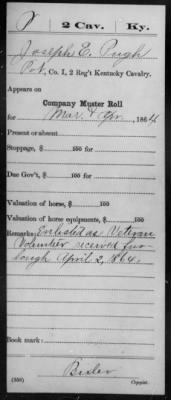 V 2 Cav. Ky.
Joseph E. Pugh
Pvt, Co. I, 2 Reg't Kentucky Cavalry.
Appears on
Company Muster Roll
for Mar. & Apr., 1864
Present or absent
Stoppage, $ 100 for
Due Gov't, $ 100 for
Valuation of horse, $ 100
Valuation of horse equipments, $ 100
Remarks: Enlisted as Veteran
Volunteer received fur-
lough April 2, 1864.
Book mark:
(358)
Copyist.